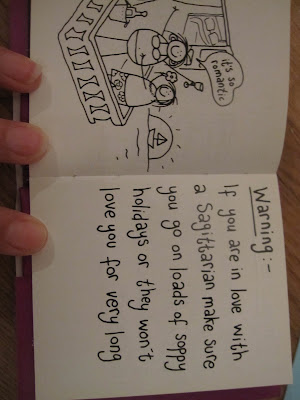 it's so
romantic
Warning:-
If you are in love with
a Sagittarian make sure
you go on loads of soppy
holidays or they won't
love you for very long